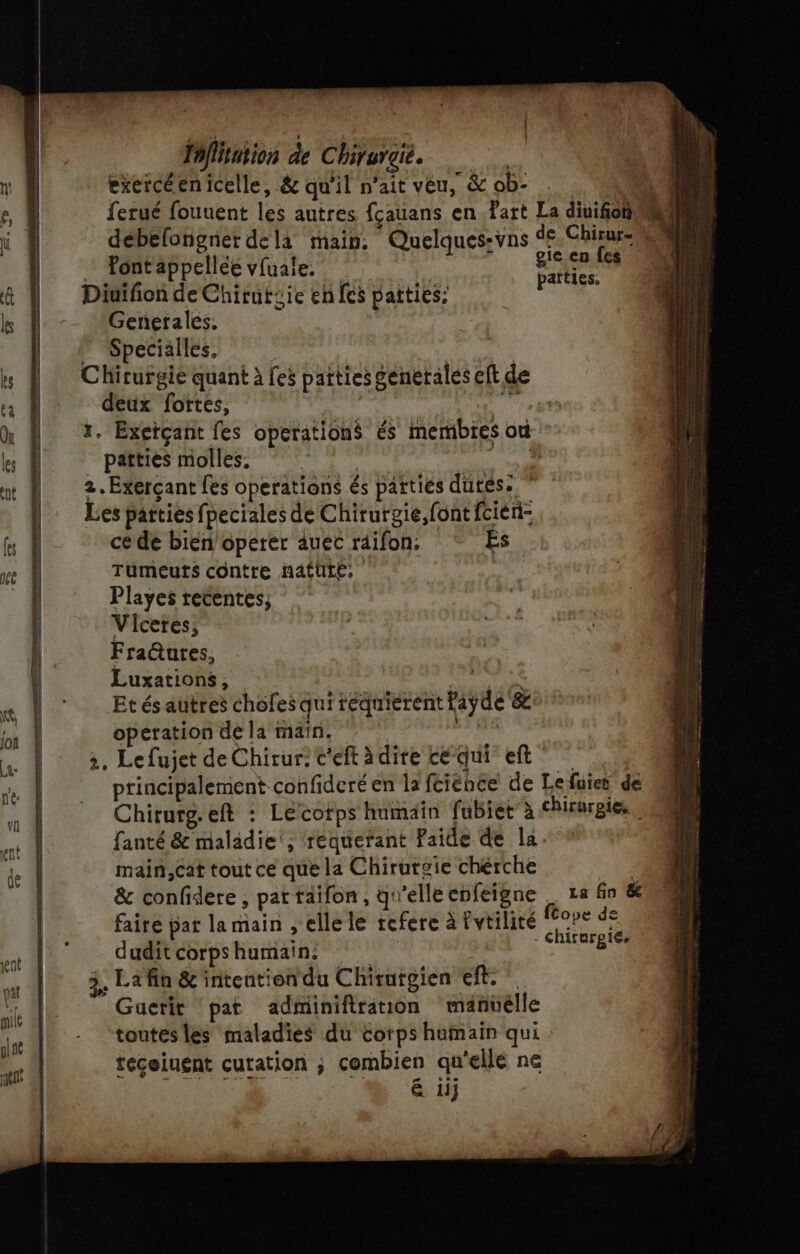 Inſtitution de Chirurgie.
exercé en icelle, & qu'il n'ait veu, & ob-
ſerué ſouuent les autres ſçauans en l'art
de beſongner de la main. Quelques-vns
l'ont appellée vſuale.
La diuiſion
de Chirur-
gie en ſes
parties.
Diuiſion de Chirurgie en ſes parties:
Generales.
Specialles.
Chirurgie quant à ſes parties generales eſt de
deux ſortes,
1. Exerçant ſes operations és membres ou
parties molles.
2. Exerçant ſes operations és parties dures.
Les parties ſpeciales de Chirurgie, ſont ſcien-
ce de bien operer auec raiſon. Es
Tumeurs contre nature.
Playes recentes,
Vlceres,
Fractures,
Luxations,
Et és autres choſes qui requierent l'ayde &
operation de la main.
2. Le ſujet de Chirur. c'eſt à dire ce qui eſt
principalement conſideré en la ſcience de
Chirurg. eſt : Le corps humain ſubiet à
Le ſuiet de
chirurgie.
ſanté & maladie, requerant l'aide de la
main, car tout ce que la Chirurgie cherche
& conſidere, par raiſon, qu'elle enſeigne
faire par la main, elle le refere à l'vtilité
dudit corps humain.
La fin &
ſcope de
chirurgie.
3. La fin & intention du Chirurgien eſt.
Guerir par adminiſtration manuelle
toutes les maladies du corps humain qui
reçoiuent curation ; combien qu'elle ne
é iij